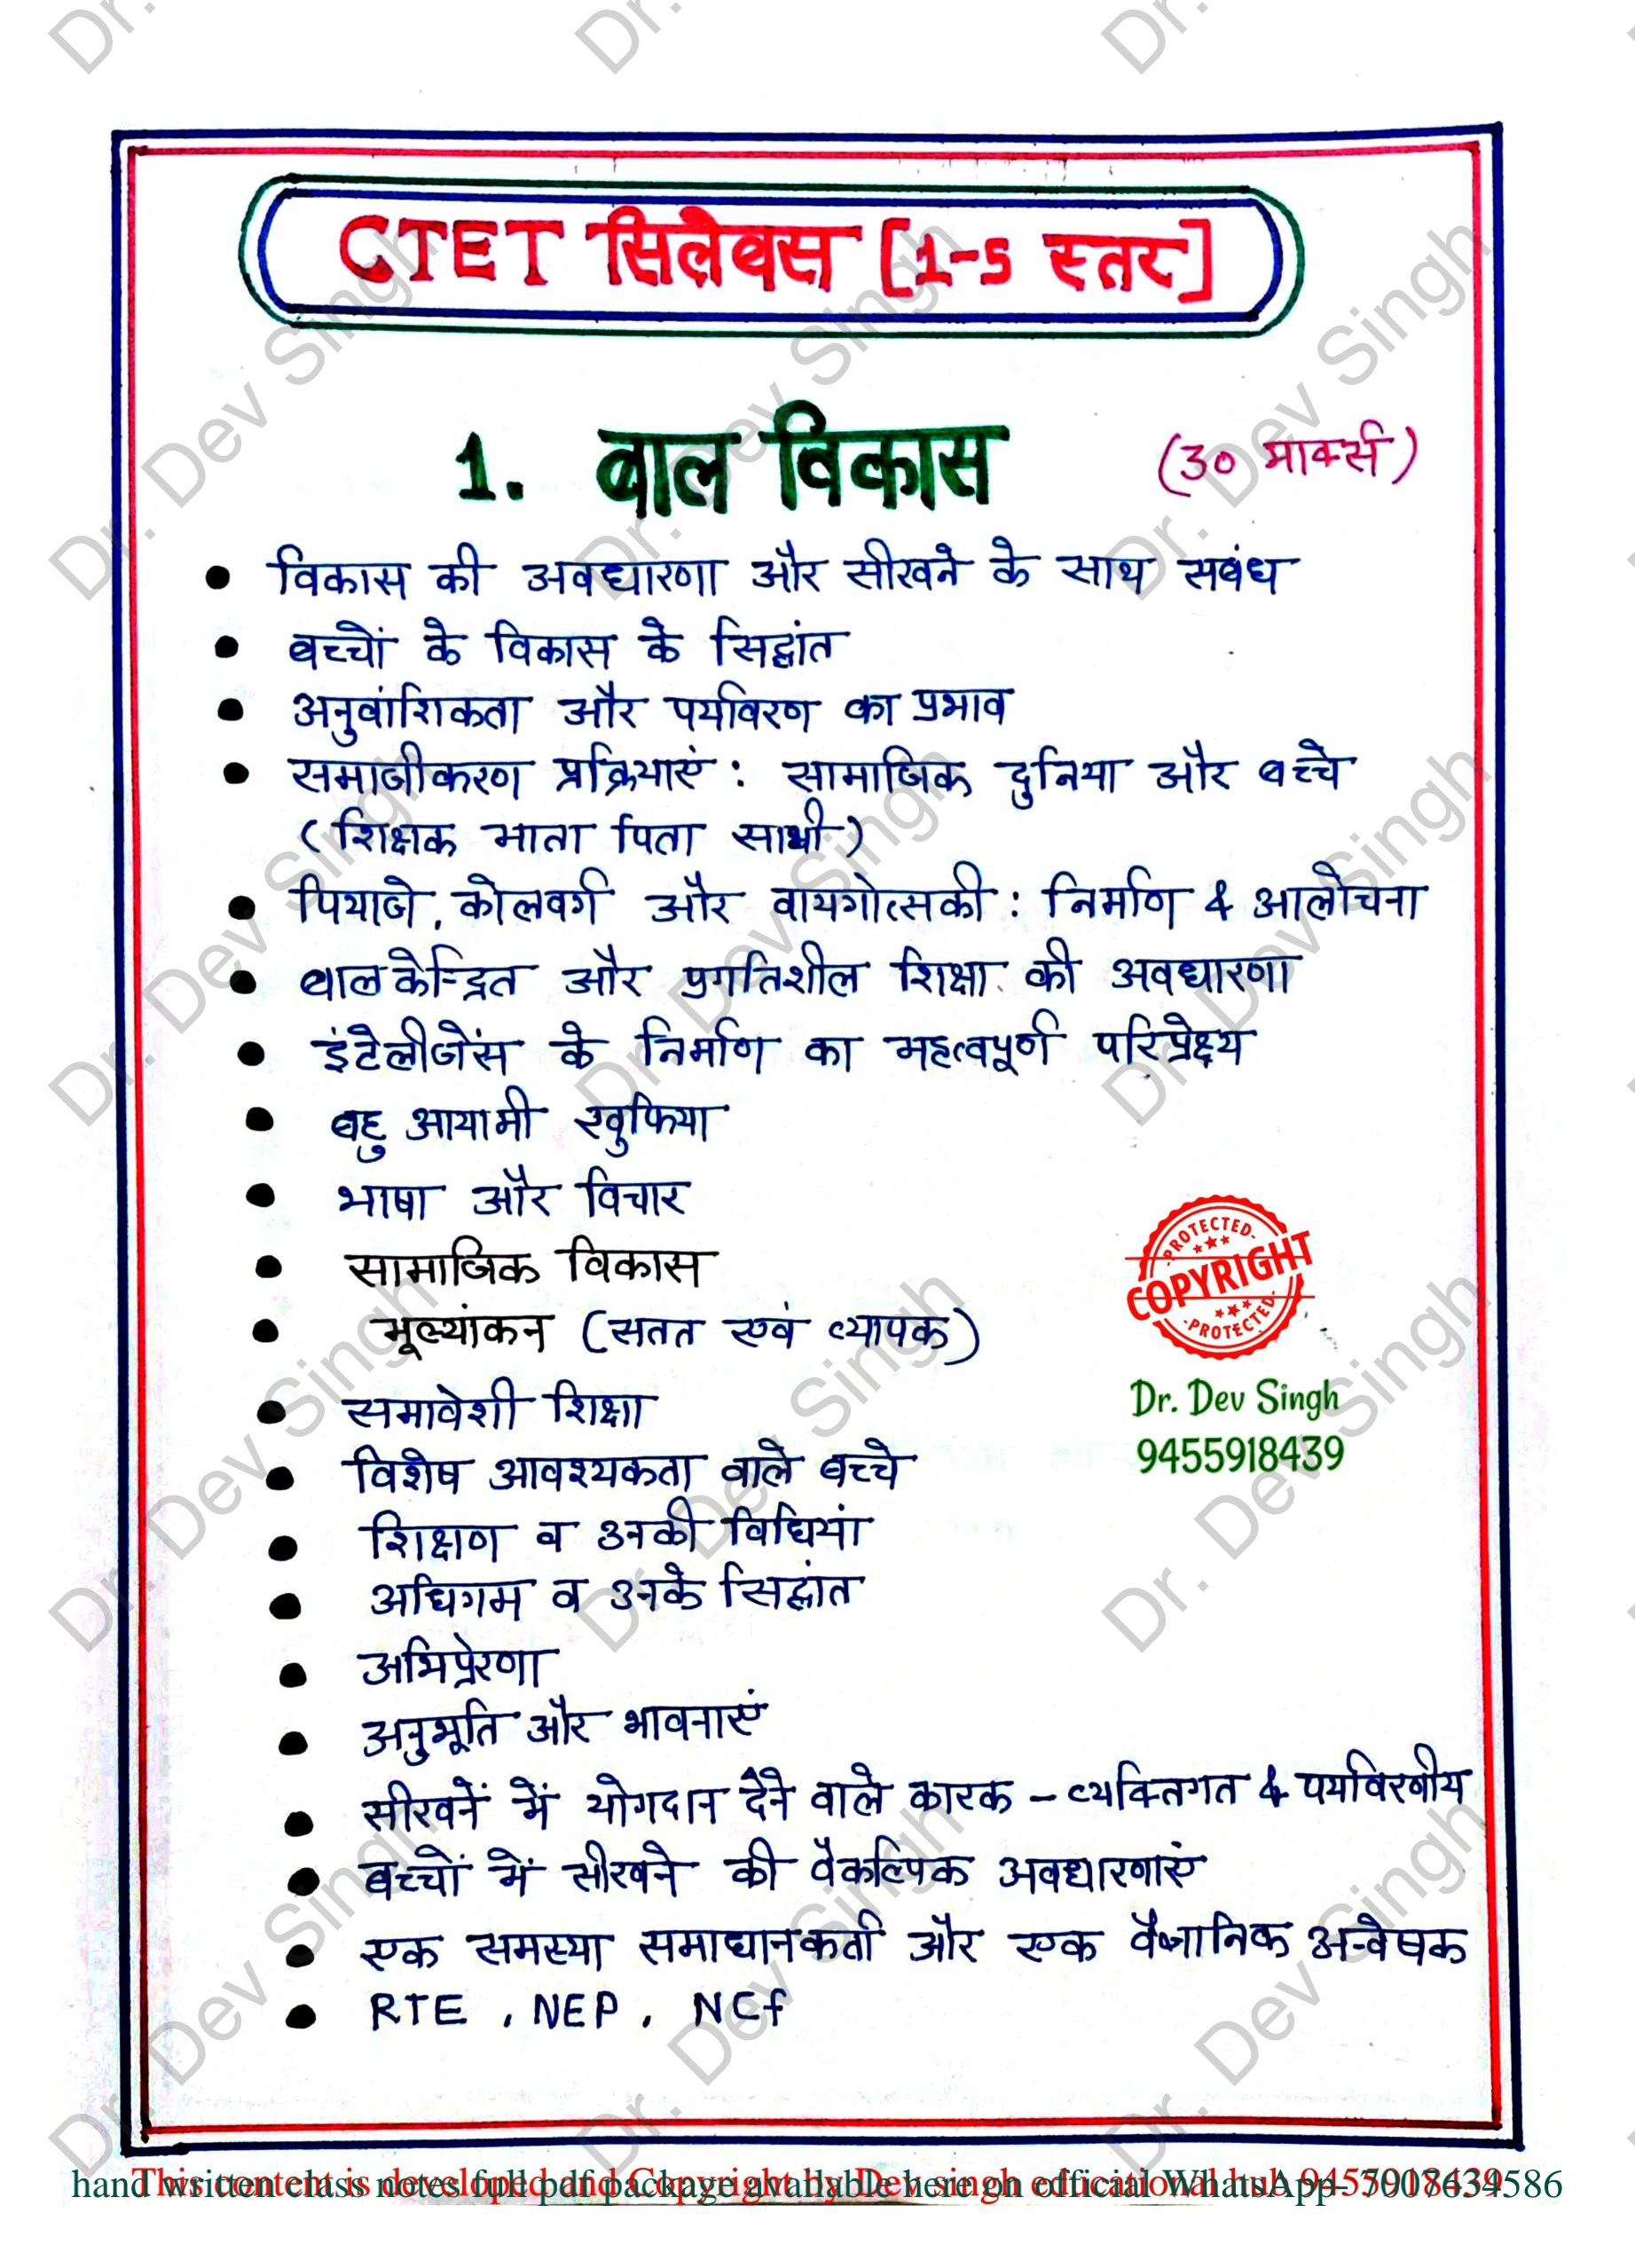 CTET सिलेबस [1-5 स्तर]
1. बाल विकास (30 मार्क्स)
• विकास की अवधारणा और सीखने के साथ सबंध
• बच्चों के विकास के सिद्धांत
• अनुवांशिकता और पर्यावरण का प्रभाव
• समाजीकरण प्रक्रियाएं : सामाजिक दुनिया और बच्चे
(शिक्षक माता पिता साथी)
• पियाजे, कोलबर्ग और वायगोत्सकी : निर्माण & आलोचना
• बालकेन्द्रित और प्रगतिशील शिक्षा की अवधारणा
• इंटेलीजेंस के निर्माण का महत्वपूर्ण परिप्रेक्ष्य
• बहु आयामी खुफिया
• भाषा और विचार
• सामाजिक विकास
• मूल्यांकन (सतत एवं व्यापक)
• समावेशी शिक्षा
• विशेष आवश्यकता वाले बच्चे
• शिक्षण व उनकी विधियां
• अधिगम व उनके सिद्धांत
• अभिप्रेरणा
• अनुभूति और भावनाएं
• सीखनें में योगदान देने वाले कारक - व्यक्तिगत & पर्यावरणीय
• बच्चों में सीखने की वैकल्पिक अवधारणाएं
• एक समस्या समाधानकर्ता और एक वैज्ञानिक अन्वेषक
• RTE , NEP , NCf
PROTECTED
COPYRIGHT
PROTECTED
Dr. Dev Singh
9455918439
hand written class notes full pdf package available here on official WhatsApp- 7007634586
This content is developed and Copyright by Dev singh educational hub 9455918439
Dr. Dev Singh